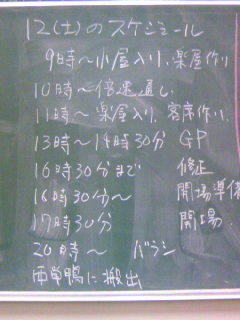 12(土)のスケジュール
9時～小屋入り、楽屋作り
10時～倍速通し
11時～楽屋入り、客席作り、
13時～14時30分 GP
16時30分まで 修正
16時30分～ 開場準備
17時30分 開場
20時～ バラシ
西巣鴨に搬出